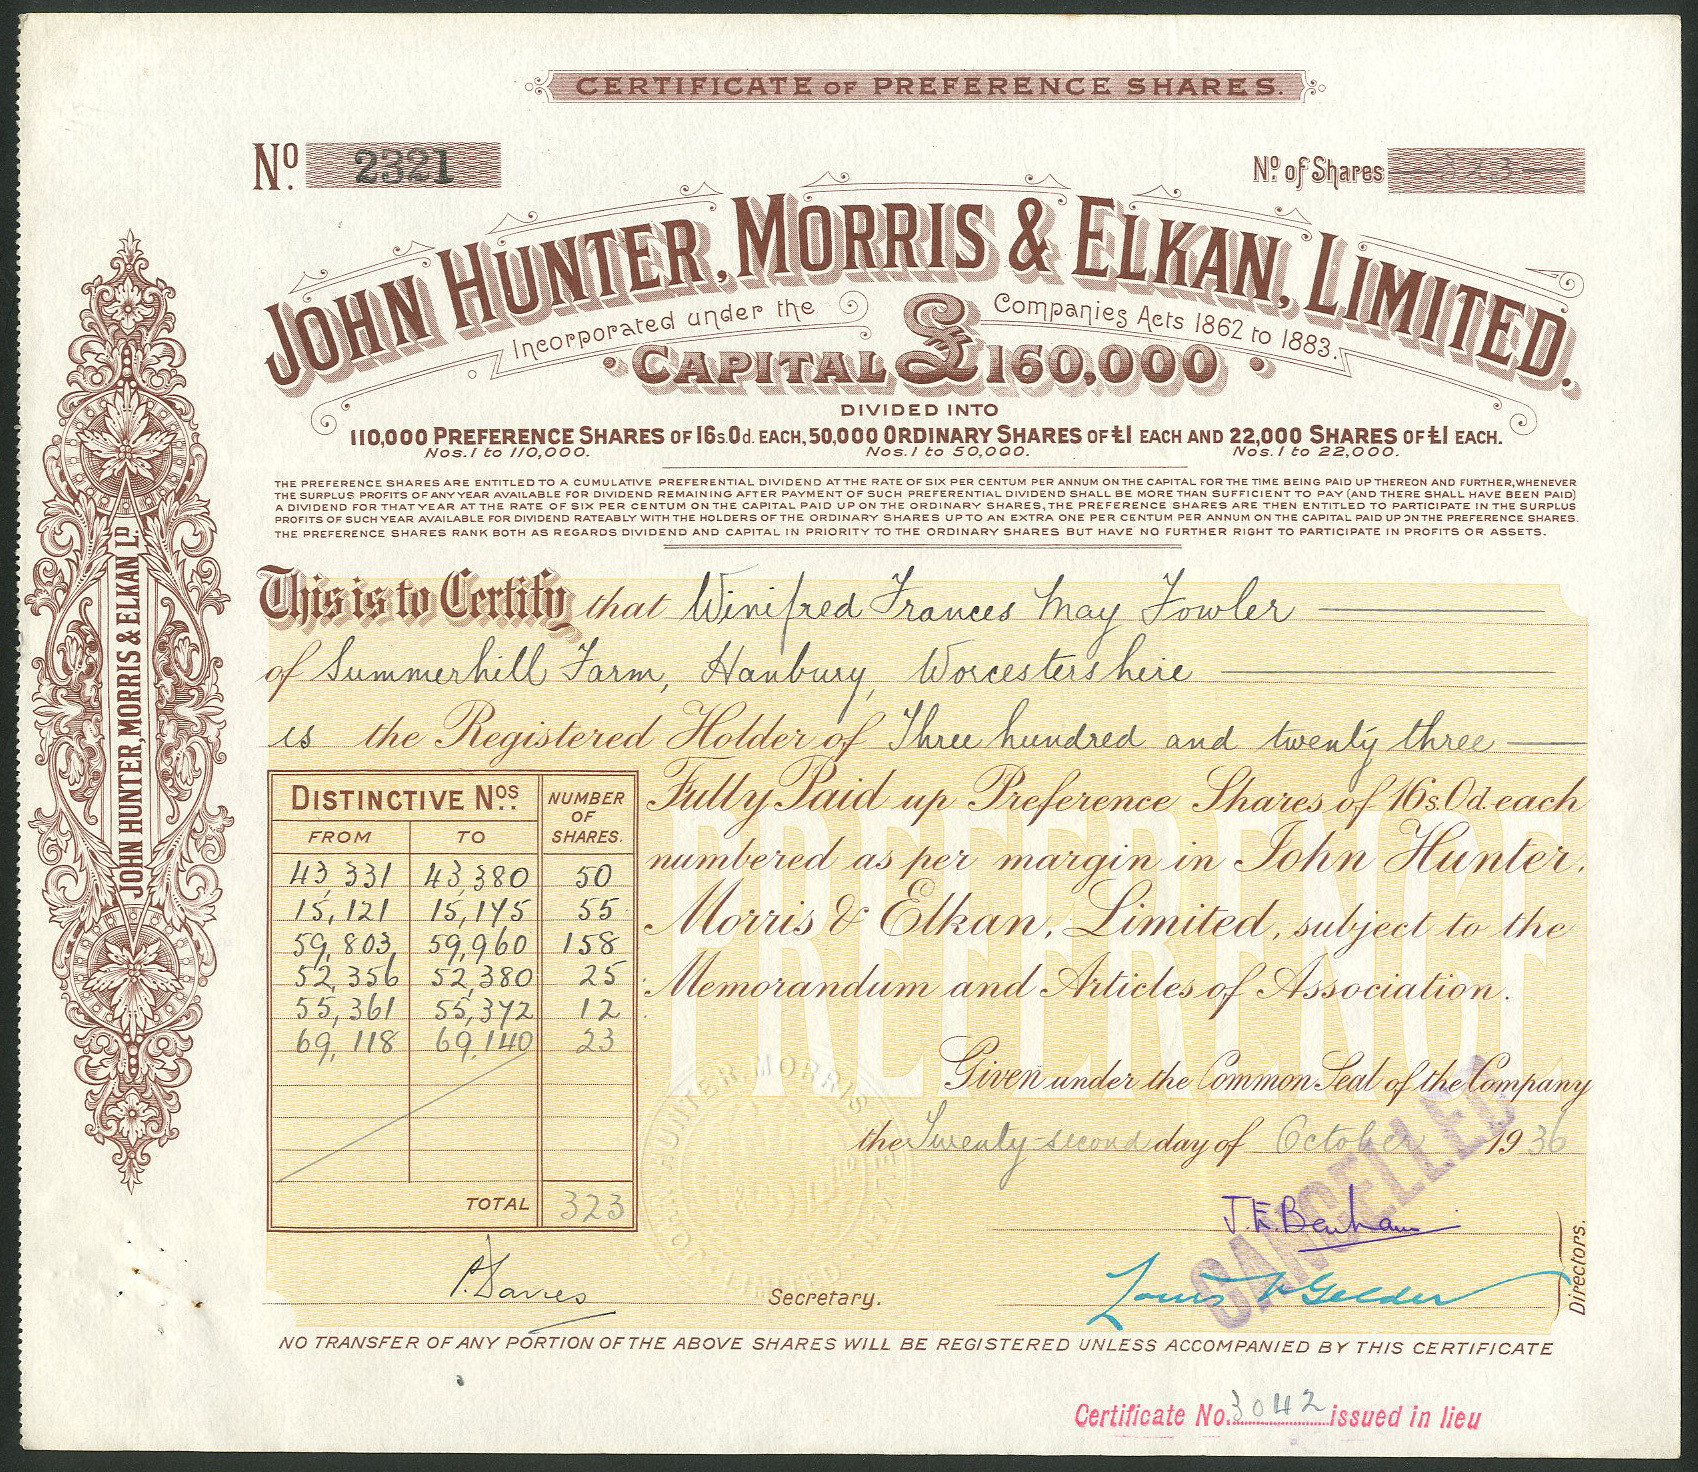 CERTIFICATE OF PREFERENCE SHARES.
No. 2321
No. of Shares 323
JOHN HUNTER, MORRIS & ELKAN, LIMITED.
Incorporated under the Companies Acts 1862 to 1883.
CAPITAL £160,000
DIVIDED INTO
110,000 PREFERENCE SHARES OF 16s.0d. EACH, 50,000 ORDINARY SHARES OF £1 EACH AND 22,000 SHARES OF £1 EACH.
Nos. 1 to 110,000. Nos. 1 to 50,000. Nos. 1 to 22,000.
THE PREFERENCE SHARES ARE ENTITLED TO A CUMULATIVE PREFERENTIAL DIVIDEND AT THE RATE OF SIX PER CENTUM PER ANNUM ON THE CAPITAL FOR THE TIME BEING PAID UP THEREON AND FURTHER, WHENEVER
THE SURPLUS PROFITS OF ANY YEAR AVAILABLE FOR DIVIDEND REMAINING AFTER PAYMENT OF SUCH PREFERENTIAL DIVIDEND SHALL BE MORE THAN SUFFICIENT TO PAY (AND THERE SHALL HAVE BEEN PAID)
A DIVIDEND FOR THAT YEAR AT THE RATE OF SIX PER CENTUM ON THE CAPITAL PAID UP ON THE ORDINARY SHARES, THE PREFERENCE SHARES ARE THEN ENTITLED TO PARTICIPATE IN THE SURPLUS
PROFITS OF SUCH YEAR AVAILABLE FOR DIVIDEND RATEABLY WITH THE HOLDERS OF THE ORDINARY SHARES UP TO AN EXTRA ONE PER CENTUM PER ANNUM ON THE CAPITAL PAID UP ON THE PREFERENCE SHARES.
THE PREFERENCE SHARES RANK BOTH AS REGARDS DIVIDEND AND CAPITAL IN PRIORITY TO THE ORDINARY SHARES BUT HAVE NO FURTHER RIGHT TO PARTICIPATE IN PROFITS OR ASSETS.
JOHN HUNTER, MORRIS & ELKAN LD.
This is to Certify that Winifred Frances May Fowler
of Summerhill Farm, Hanbury, Worcestershire
is the Registered Holder of Three hundred and twenty three
Fully Paid up Preference Shares of 16s.0d. each
numbered as per margin in John Hunter,
Morris & Elkan, Limited, subject to the
Memorandum and Articles of Association.
PREFERENCE
PREFERENCE
DISTINCTIVE Nos. NUMBER OF SHARES.
FROM TO
43,331 43,380 50
15,121 15,175 55
59,803 59,960 158
52,356 52,380 25
55,361 55,372 12
69,118 69,140 23
TOTAL 323
Given under the Common Seal of the Company
the Twenty-second day of October 1936
CANCELLED
HUNTER, MORRIS
LIMITED
J. E. Benham
Louis V Gelder
Directors.
P. Davies
Secretary.
NO TRANSFER OF ANY PORTION OF THE ABOVE SHARES WILL BE REGISTERED UNLESS ACCOMPANIED BY THIS CERTIFICATE
Certificate No. 3042 issued in lieu